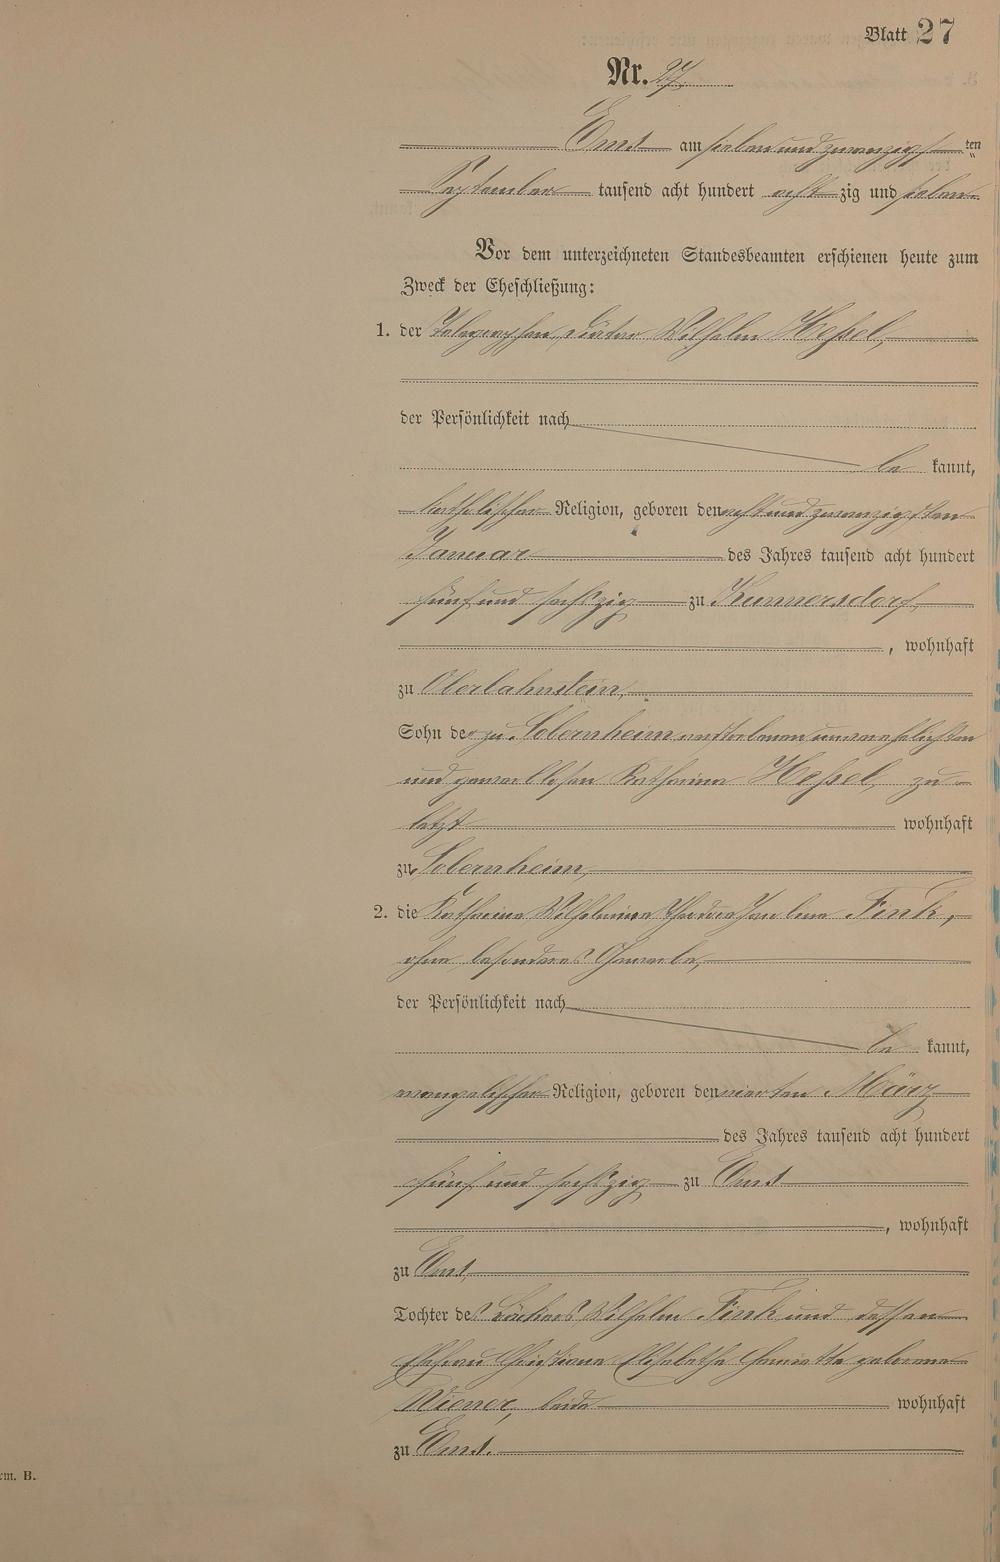 Blatt 27
Nr. 27
Ems am sieben und zwanzigsten
September tausend acht hundert acht zig und sieben
Vor dem unterzeichneten Standesbeamten erschienen heute zum
Zweck der Eheschließung:
1. der Wilhelm Heßel,
der Persönlichkeit nach
be kannt,
katholischer Religion, geboren den acht und zwanzigsten
Januar des Jahres tausend acht hundert
fünf und sechszig zu Kunnersdorf,
, wohnhaft
zu Oberlahnstein,
Sohn der zu Sobernheim verstorbenen unverehelichten
und gewerblosen Katharina Heßel, zu-
letzt wohnhaft
zu Sobernheim,
2. die Katharina Wilhelmine Fink,
ohne besonderes Gewerbe,
der Persönlichkeit nach
be kannt,
evangelischer Religion, geboren den vierten März
des Jahres tausend acht hundert
fünf und sechszig zu Ems
, wohnhaft
zu Ems,
Tochter des Bäckers Wilhelm Fink und dessen
Ehefrau Christiane Elisabethe Henriette geborene
Wiener, beide wohnhaft
zu Ems.
rm. B.